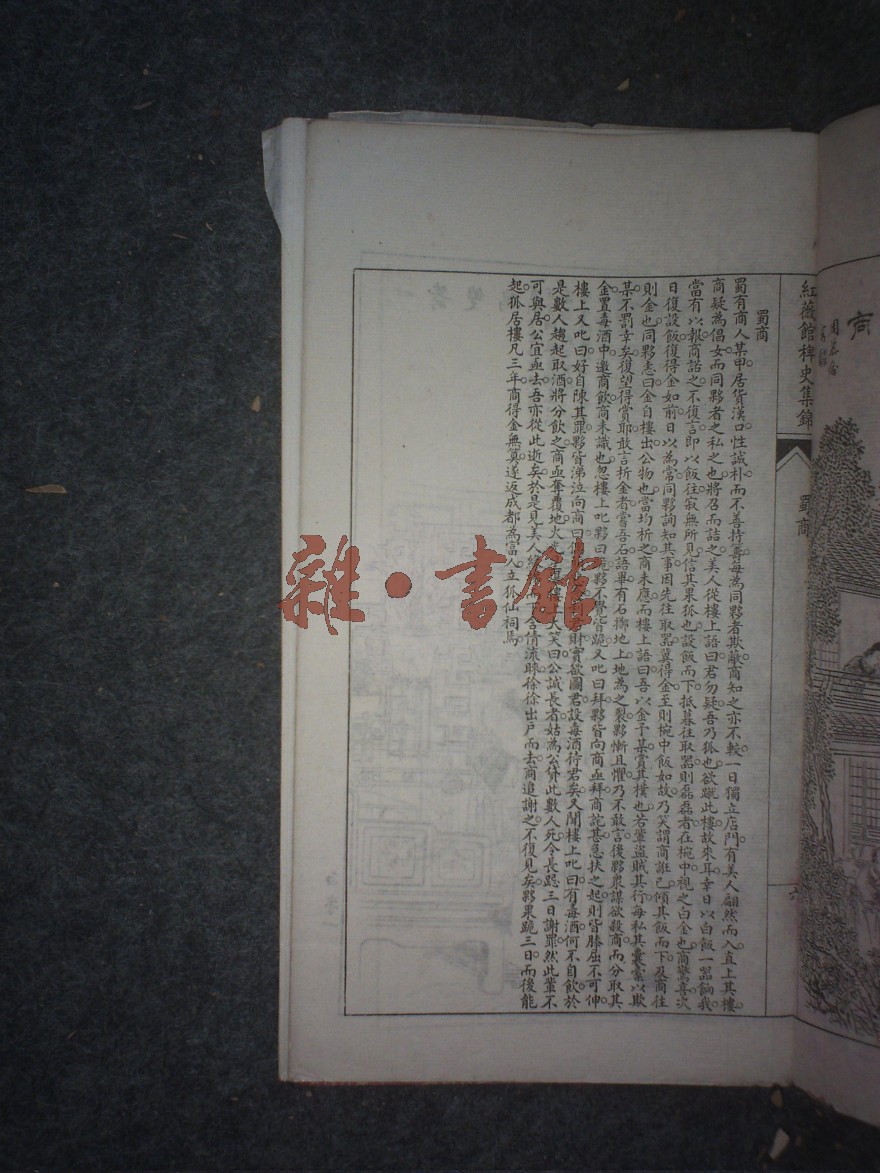 紅薇館稗史集錦
蜀商
六
蜀商
蜀有商人某甲居貨漢口性誠朴而不善持籌每為同夥者欺蔽商知之亦不較一日獨立店門有美人翩然而入直上其樓
商疑為倡女而同夥者之私之也將召而詰之美人從樓上語曰君勿疑吾乃狐也欲蹴此樓故來耳幸日以白飯一器餉我
當有以報商諾之不復言即以飯往寂無所見信其果狐也設飯而下抵暮往取器則磊磊者在椀中視之白金也商驚喜次
日復設飯復得金如前日以為常同夥詢知其事因先往取器冀得金至則椀中飯如故乃笑謂商誑己傾其飯而下及商往
則金也同夥恚曰金自樓出公物也當均析之商未應而樓上語曰吾以金予某賞其樸也若輩盜賊其行每私其囊橐以欺
某不罰幸矣復望得賞耶敢言析金者當吾石語畢有石擲地上地為之裂夥慚且懼乃不敢言後夥眾謀欲殺商而分取其
金置毒酒中邀商飲商未識也忽樓上叱夥曰跪夥不覺皆跪又叱曰拜夥皆向商亟拜商詫甚急扶之起則皆膝屈不可伸
樓上又叱曰好自陳其罪夥皆涕泣向商曰財實欲圖君設毒酒待君矣又聞樓上叱曰有毒酒何不自飲於
是數人趨起取酒將分飲之商亟奪覆地火光大笑曰公誠長者姑為公貸此數人死令長跽三日謝罪然此輩不
可與居公宜亟去吾亦從此逝矣於是見美人而下含情流睞徐徐出戶而去商追謝之不復見矣夥果跪三日而後能
起狐居樓凡三年商得金無算遂返成都為富人立狐仙祠焉
雜·書館